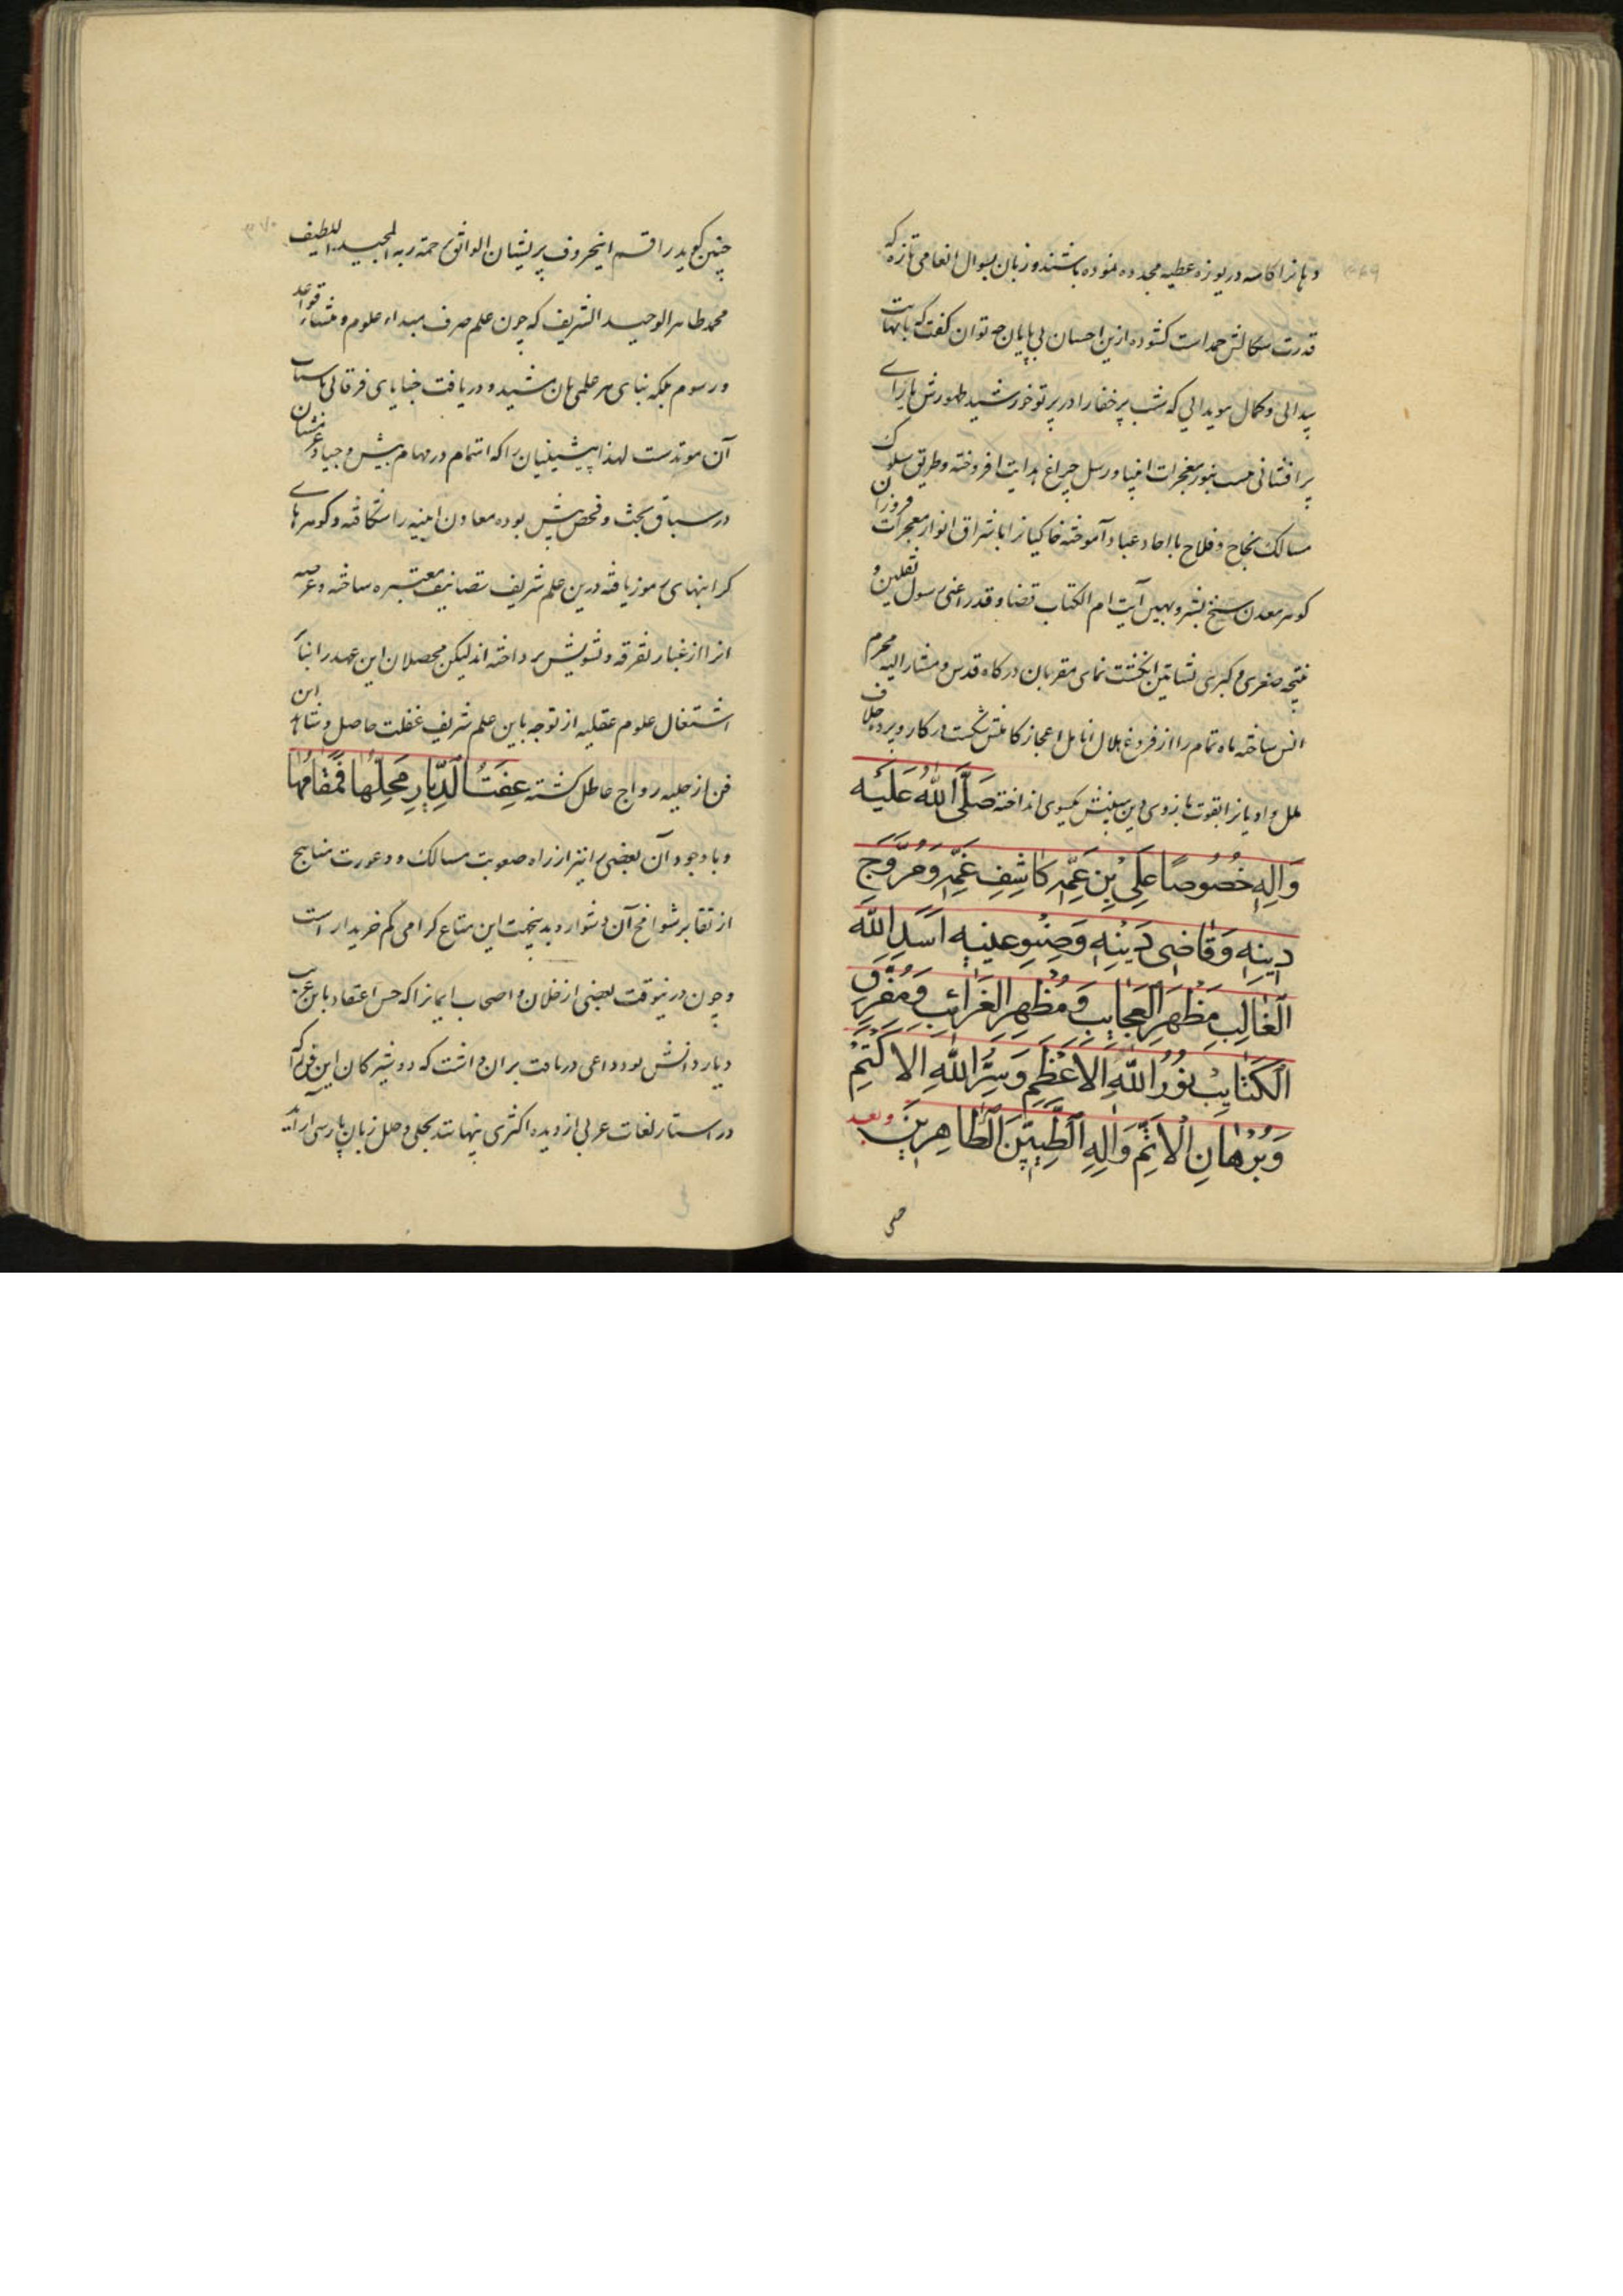 ۳۶۹
دهانرا کاسه دریوزه عطیه مجدده نموده باشند و زبان بسوال انعامی تازه که
قدرت سکالش حمد است کشوده ازین احسان بی پایان چه توان گفت که با نهایت
پیدایی و کمال هویدایی که شب پر خفا را در پرتو خورشید ظهورش یارای
پر افشانی نیست بنور معجزات انبیا و رسل چراغ هدایت افروخته و طریق سلوک
مسالک نجاح و فلاح با احاد عباد آموخته خاکیانرا باشراق انوار معجزات فروزان
کوهر معدن سنخ بشر و بهین آیت ام الکتاب قضا و قدر اعنی رسول ثقلین و
نتیجه صغری و کبری نشاتین انگشت نمای مقربان درکاه قدس و مشار الیه محرم
انس ساخته ماه تمام را از فروغ هلال انامل اعجاز کاملش شکست در کار و پرده خلاف
ملل و ادیانرا بقوت بازوی دین مبینش یکسوی انداخته صَلَّی اللّٰهُ عَلَیْه
وَاٰلِهِ خُصُوصًا عَلِیِّ بْنِ عَمِّهِ کَاشِفِ غَمِّهِ وَمُرَوِّجِ
دِینِهِ وَقَاضِی دَیْنِهِ وَصِنْوِ عینِهِ اَسَدِ اللّٰه
الْغَالِبِ مَظْهَرِ الْعَجَایِبِ وَمُظْهِرِ الْغَرَائِبِ وَمُفَرِّقِ
الْکَتَایِبْ نُورُ اللّٰهِ الاَعْظَمِ وَسِرُّ اللّٰهِ الاَکْتَمِ
وَبُرْهَانِ الْاَتَمِّ وَاٰلِهِ الطَّیِّبِینَ الطَّاهِرِینَ وبعد
چنین
۳۷۰
چنین گوید راقم اینحروف پریشان الواثق برحمة ربه المجید اللطیف
محمد طاهر الوحید الشریف که چون علم صرف مبداء علوم و منشاء قواعد
و رسوم بلکه بنای هر علمی بآن مشید و دریافت خبایای فرقانی باساس
آن موتدست لهذا پیشینیان را که اهتمام در مهام بیش و جیاد عزمشان
در سباق بحث و فحص پیش بوده معاون ابنیه را شکافته و کوهرهای
کرانبهای رموز یافته درین علم شریف تصانیف معتبره ساخته و عرصه
انرا از غبار تفرقه و تشویش پرداخته اند لیکن محصلان این عهد را بنا بر
اشتغال علوم عقلیه از توجه باین علم شریف غفلت حاصل و شاهد این
فن از حلیه رواج عاطل کشته عِفَتُ الدِّیَارِ مَحِلُّهَا فَمُقَامُهَا
و با وجود آن بعضی را نیز از راه صعوبت مسالک و وعورت مناهج
از تقابر شوامخ آن دشوار و بدینجهت این متاع کرامی کم خریدار است
و چون درینوقت بعضی از خلان و اصحاب ایمانرا که حس اعتقاد باین غریب
دیار دانش بود داعی دریافت بران داشت که دوشیزکان این فن را که
در استار لغات عربی از دیده اکثری پنهانند بحلی و حلل زبان پارسی اراید